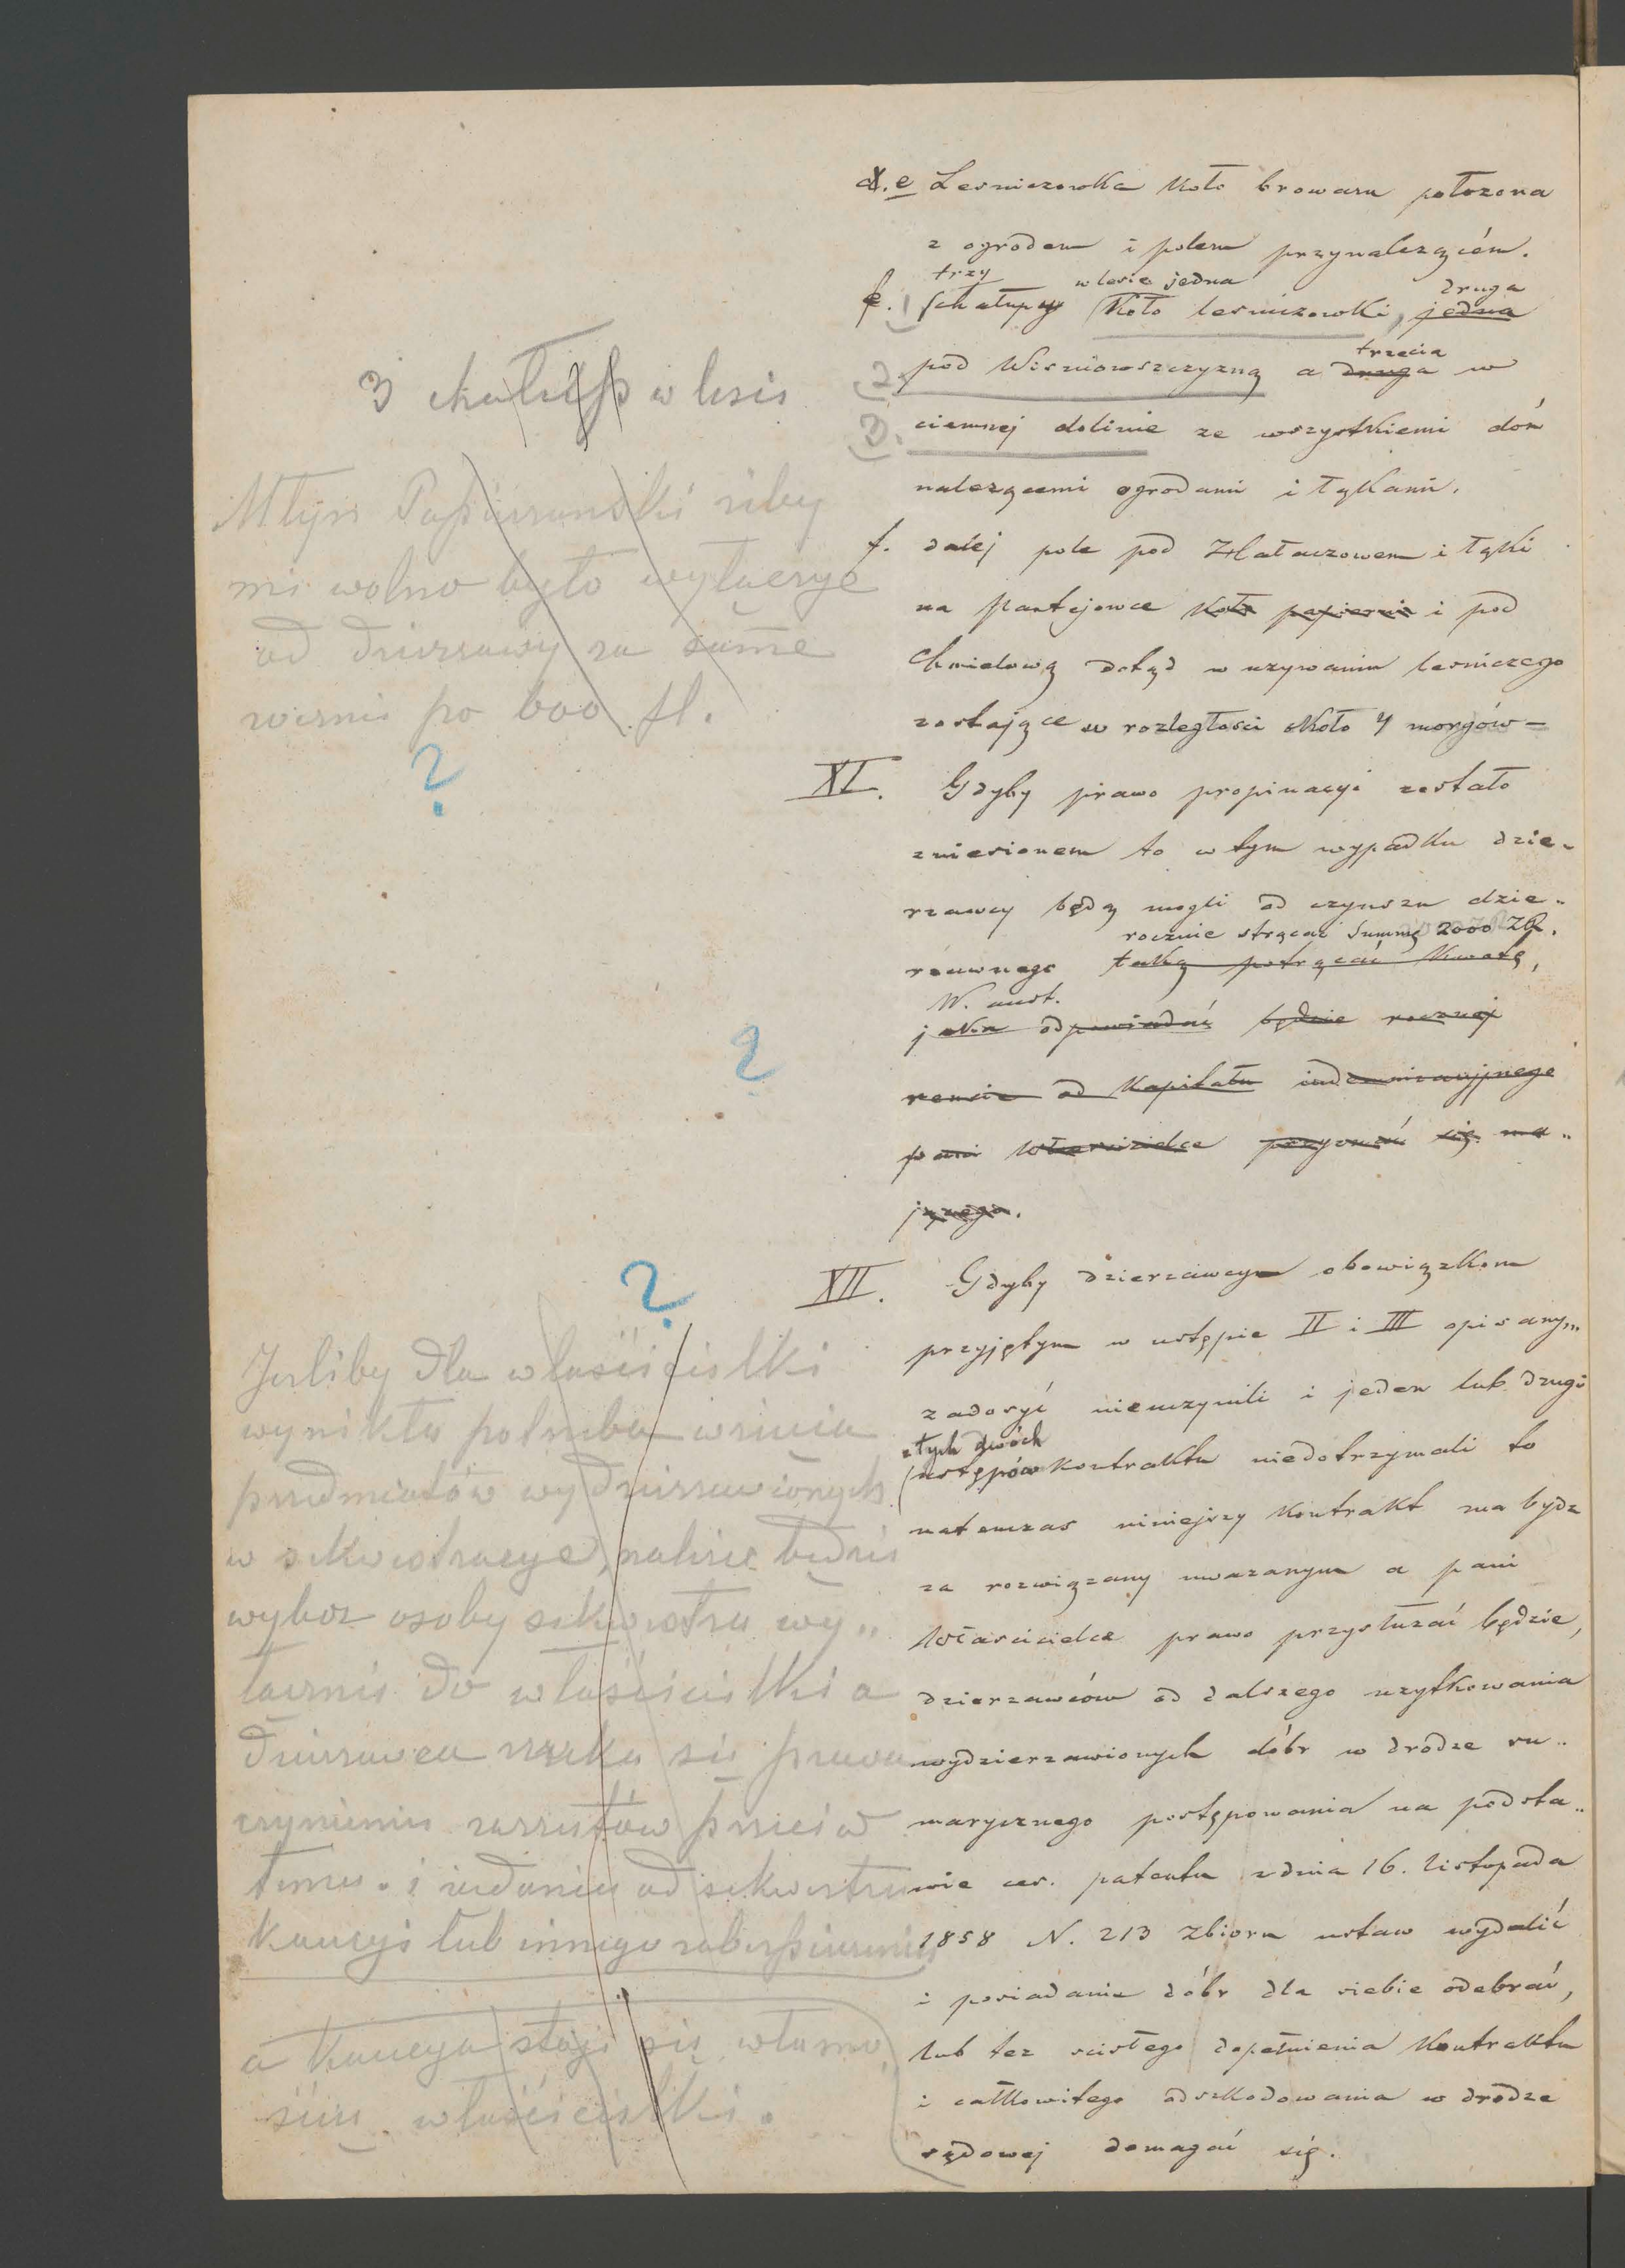 d. e Lesniczowka koło browaru połozona
z ogrodem i polem przynalezącém.
trzy w lesie jedna druga
f. 1 Schałupy koło lesniczowki, jedna
trzecia
2. pod Wisniowszczyzną a druga w
3. ciemnej dolinie ze wszystkiemi dóń
nalezącemi ogrodami i łąkami.
f. daléj pole pod Hłałaczowem i łąki
na Pantejowce koło papierni i pod
Chmielową dotąd w uzywaniu lesniczego
zostające w rozległosci około 4 morgów =
XI. Gdyby prawo propinacyi zostało
zniesionem to w tym wypadku dzie-
rzawcy będą mogli od czynszu dzie-
rocznie strącać Summę 2000 ZR.
rzawnego taką potrącać kwotę,
W. aust.
jaka odpowiadać będzie rocznej
rencie od Kapitału indemnizacyjnego
pani Włascicielce przyznać się ma-
jącego.
XII. Gdyby dzierzawcy obowiązkom
przyjętym w ustępie II i III opisanym
zadosyć nieuczynili i jeden lub drugi
z tych dwóch
ustępów kontraktu niedotrzymali to
natenczas niniejszy Kontrakt ma bydz
za rozwiązany uwazanym a pani
Włascicielce prawo przysłuzać będzie,
dzierzawców od dalszego uzytkowania
wydzierzawionych dóbr w drodze su-
marycznego postępowania na podsta-
wie ces. patentu z dnia 16. Listopada
1858 N. 213 Zbioru ustaw wydalić
i posiadanie dóbr dla siebie odebrać,
lub tez scisłego dopełnienia Kontraktu
i całkowitego odszkodowania w drodze
sądowej domagać się.
3 chałup w lesie
Młyn Papiernański zeby
mi wolno było wyłączyć
od dzierzawy za sumę
rocznie po 600 fl.
?
?
?
Jesliby dla właścicielki
wynikła potrzeba wzięcia
przedmiotów wydzierzawionych
w sekwestracye, nalezec będzie
wybor osoby sekwestra wy„
łącznie do właścicielki a
dzierzawca zrzeka się prawa
czynienia zarzutów przeciw
temu. i ządania od sekwestra
kaucyi lub innego zabezpieczenia
a Kaucya staje się własno
ścią właścicielki.